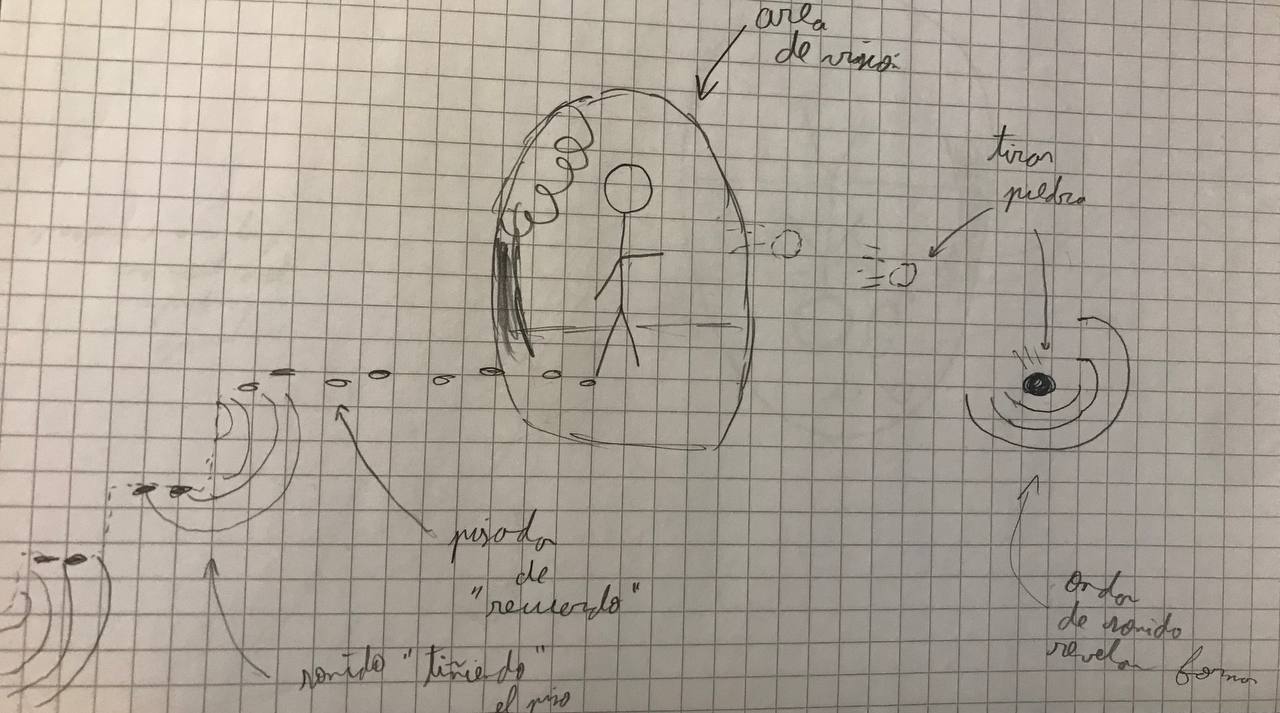 area
de visió
tirar
piedra
pisada
de
"recuerdo"
sonido "tiñiendo"
el piso
ondas
de sonido
revelan formas